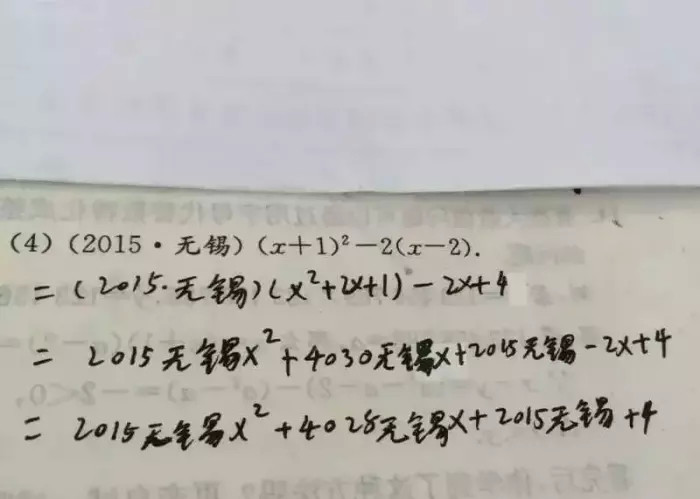 (4)(2015·无锡)(x+1)²-2(x-2).
=(2015·无锡)(x²+2x+1)-2x+4
= 2015无锡x²+4030无锡x+2015无锡-2x+4
= 2015无锡x²+4028无锡x+2015无锡+4